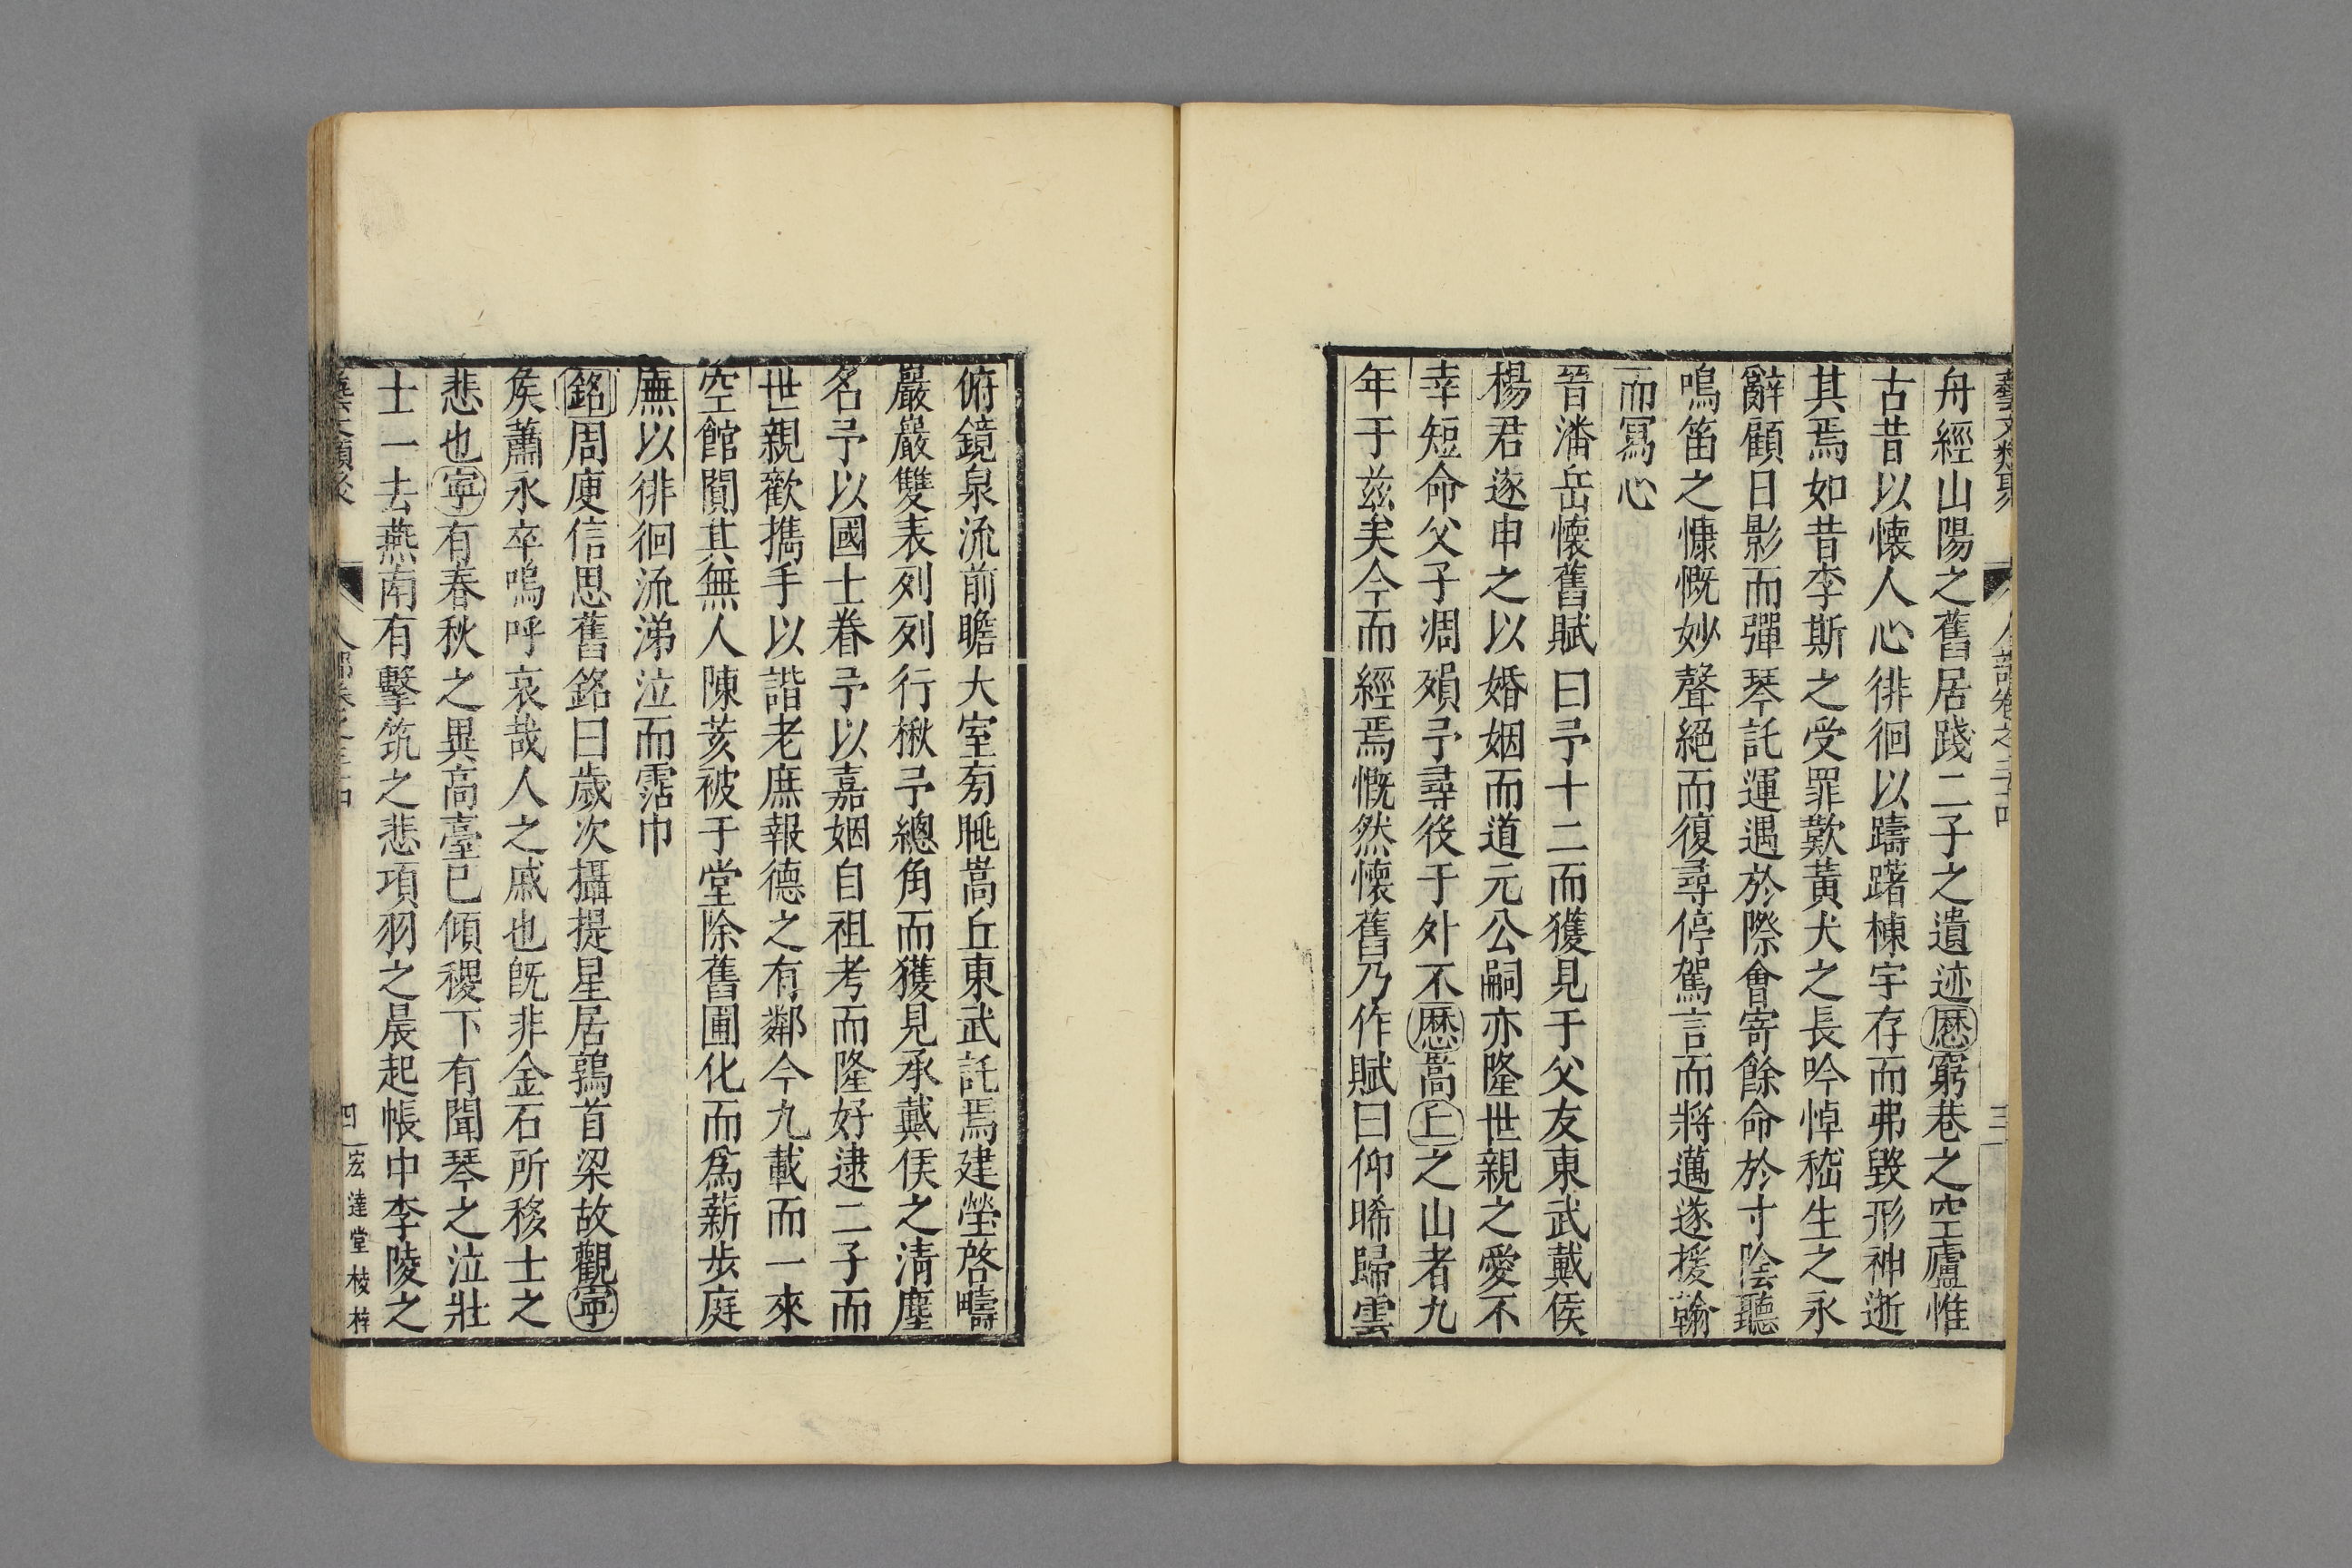 藝文類聚 人部卷之三十四 三
舟經山陽之舊居踐二子之遺迹歷窮巷之空廬惟
古昔以懷人心徘徊以躊躇棟宇存而弗毀形神逝
其焉如昔李斯之受罪歎黃犬之長吟悼嵇生之永
辭顧日影而彈琴託運遇於際會寄餘命於寸陰聽
鳴笛之慷慨妙聲絕而復尋停駕言而將邁遂援翰
而冩心
晉潘岳懷舊賦曰予十二而獲見于父友東武戴侯
楊君遂申之以婚姻而道元公嗣亦隆世親之愛不
幸短命父子凋殞予尋役于外不歷嵩上之山者九
年于兹矣今而經焉慨然懷舊乃作賦曰仰晞歸雲
俯鏡泉流前瞻大室旁眺嵩丘東武託焉建塋啓疇
巖巖雙表列列行楸予總角而獲見承戴侯之清塵
名予以國士眷予以嘉姻自祖考而隆好逮二子而
世親歡攜手以諧老庶報德之有鄰今九載而一來
空館闃其無人陳荄被于堂除舊圃化而爲薪步庭
廡以徘徊流涕泣而霑巾
銘周庾信思舊銘曰歲次攝提星居鶉首梁故觀寧
矦蕭永卒嗚呼哀哉人之戚也旣非金石所移士之
悲也寧有春秋之異高臺已傾稷下有聞琴之泣壯
士一去燕南有擊筑之悲項羽之晨起帳中李陵之
四 宏達堂棱梓